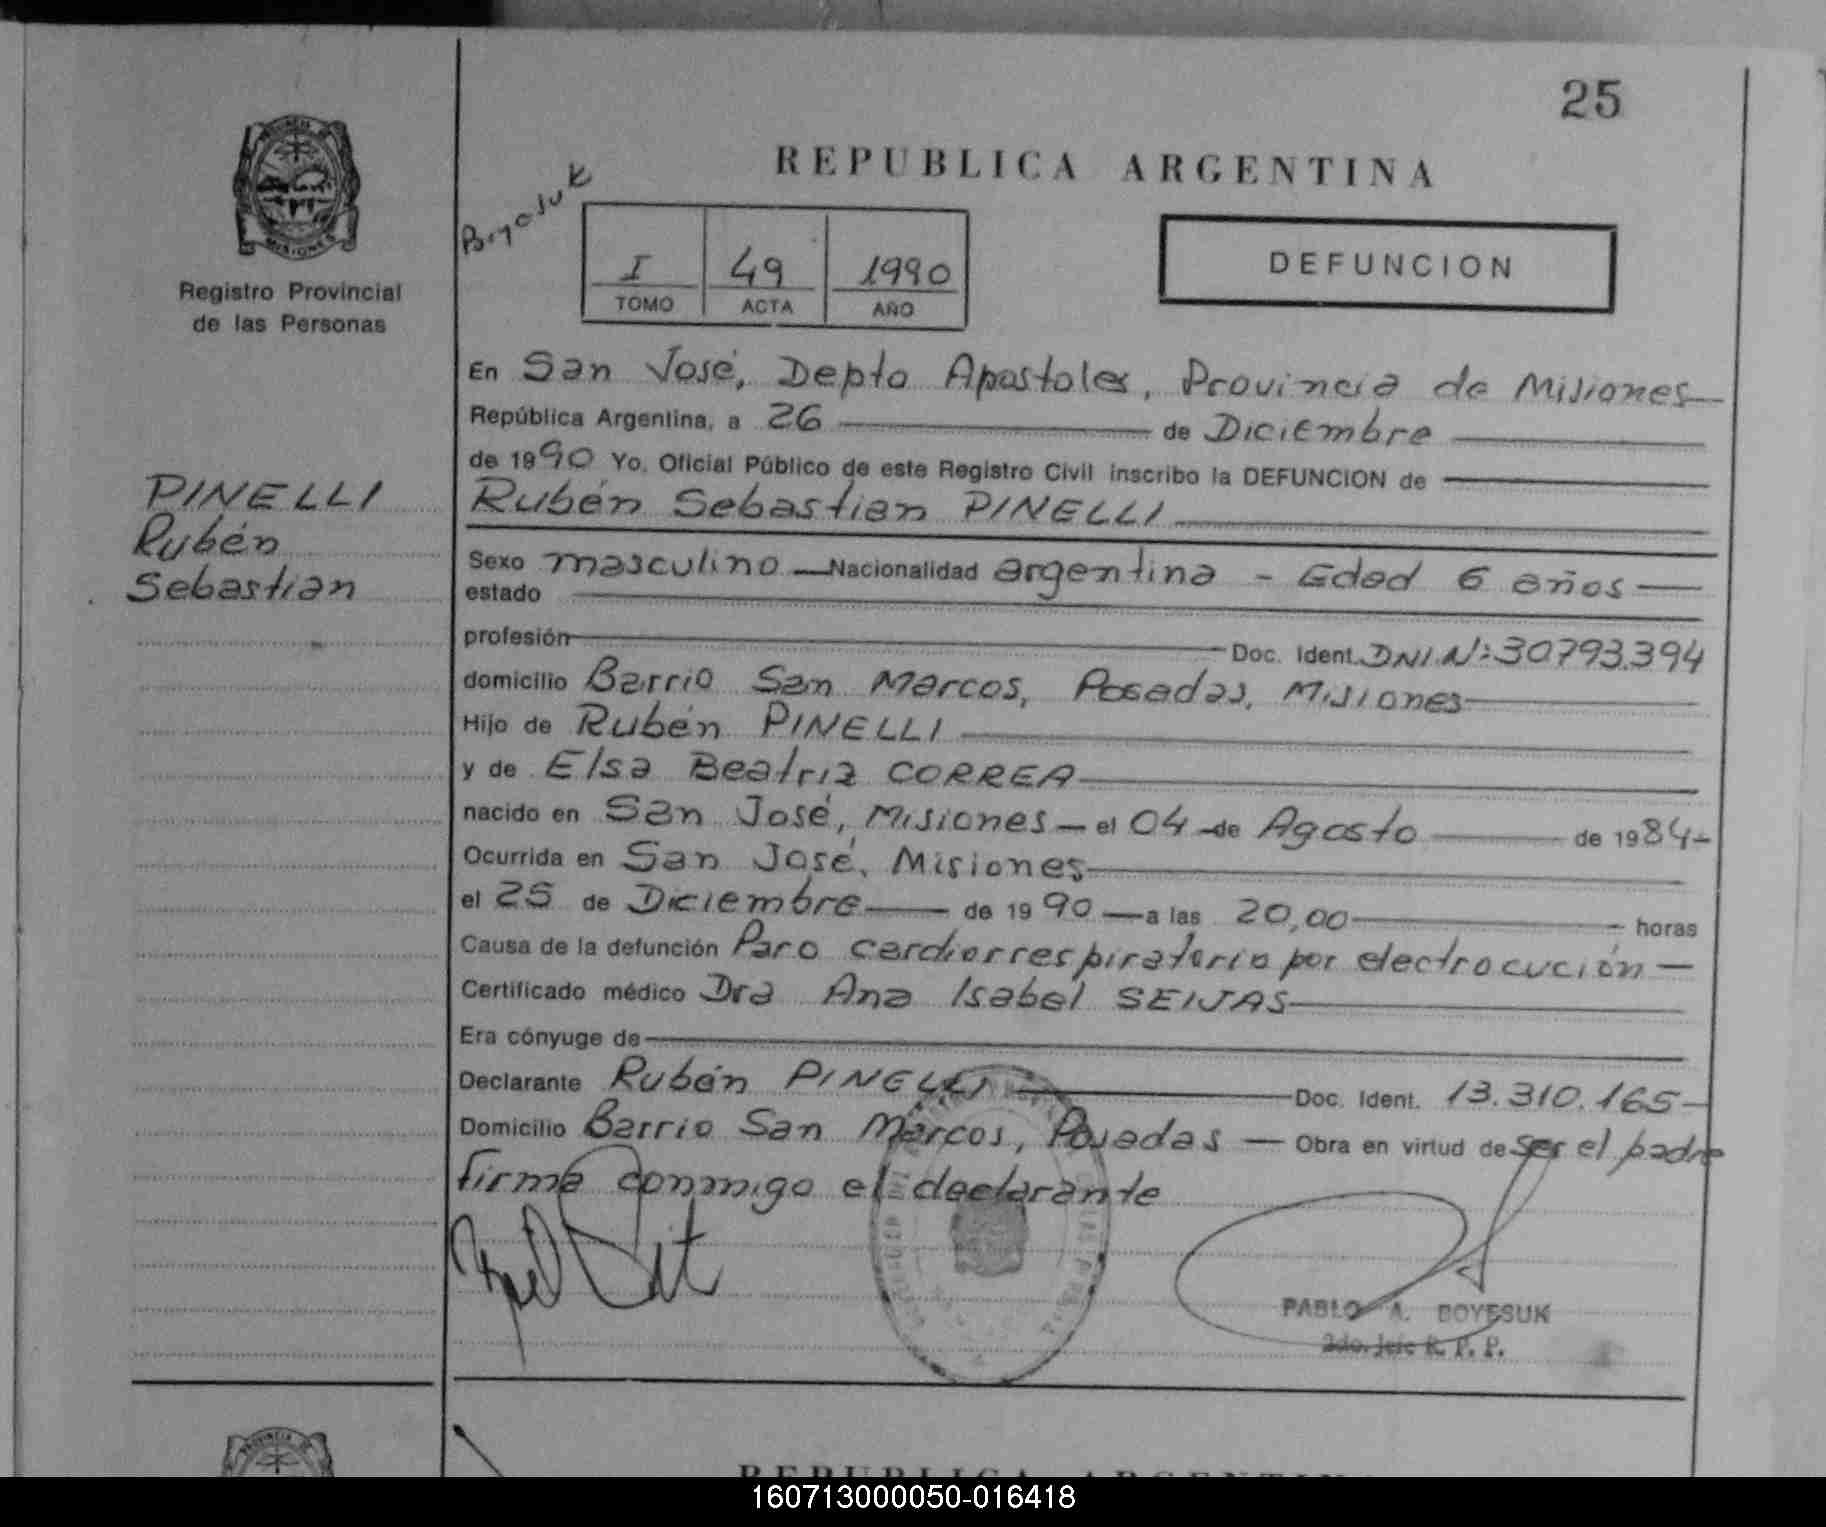 25
REPUBLICA ARGENTINA
PROVINCIA DE
MISIONES
Registro Provincial
de las Personas
I 49 1990
TOMO ACTA AÑO
DEFUNCION
En San José, Depto Apostoles, Provincia de Misiones
República Argentina, a 26 de Diciembre
de 1990 Yo, Oficial Público de este Registro Civil inscribo la DEFUNCION de
PINELLI
Rubén
Sebastian
Rubén Sebastian PINELLI
Sexo masculino Nacionalidad argentina - Edad 6 años
estado
profesión Doc. Ident. DNI.Nº: 30793.394
domicilio Barrio San Marcos, Posadas, Misiones
Hijo de Rubén PINELLI
y de Elsa Beatriz CORREA
nacido en San José, Misiones - el 04 de Agosto de 1984-
Ocurrida en San José, Misiones
el 25 de Diciembre de 1990 a las 20,00 horas
Causa de la defunción Paro cardiorrespiratorio por electrocución
Certificado médico Dra Ana Isabel SEIJAS
Era cónyuge de
Declarante Rubén PINELLI Doc. Ident. 13.310.165-
Domicilio Barrio San Marcos, Posadas - Obra en virtud de ser el padre
firma conmigo el declarante
PABLO A. BOYESUK
2do. Jefe R. P. P.
REPUBLICA ARGENTINA
160713000050-016418